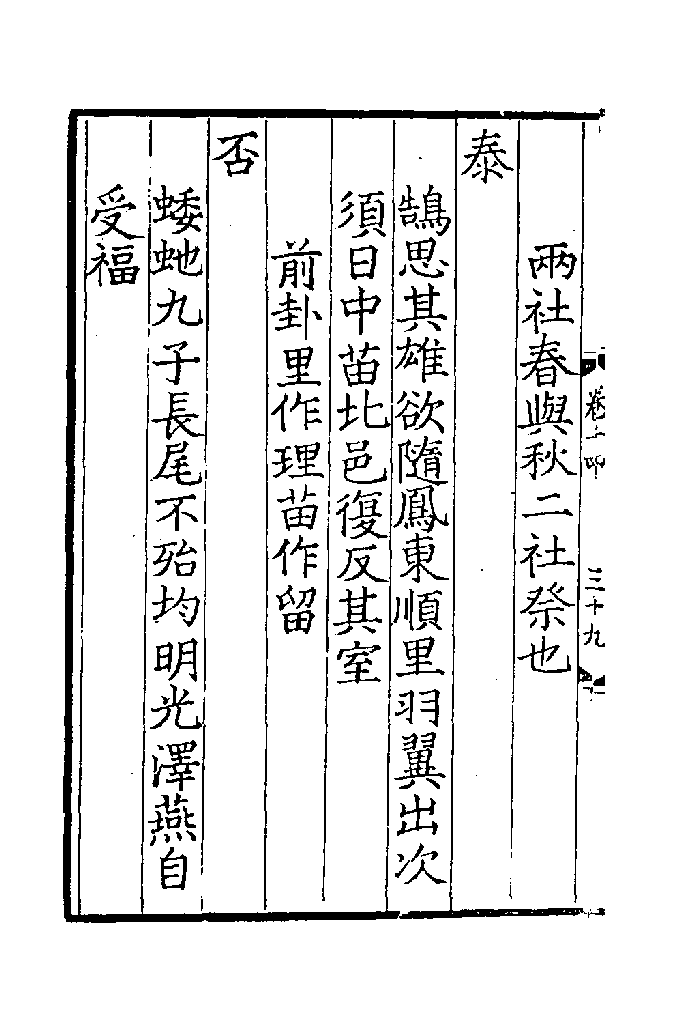 卷十四 三十九
兩社春與秋二社祭也
泰
鵠思其雄欲隨鳳東順里羽翼出次
須日中苗北邑復反其室
前卦里作理苗作留
否
蜲虵九子長尾不殆均明光澤燕自
受福